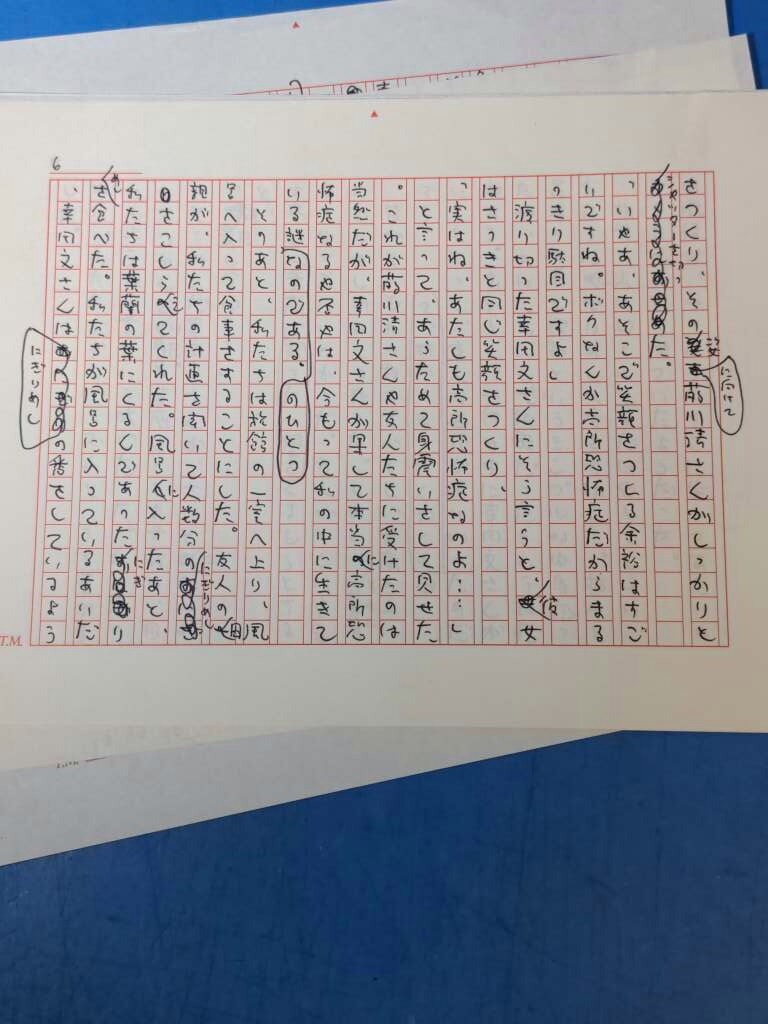 をつくり、その姿に向けて前川清さんがしっかりと
シャッターを切った。
「いやあ、あそこで笑顔をつくる余裕はすご
いですね。ボクなんか高所恐怖症だからまる
っきり駄目ですよ」
渡り切った幸田文さんにそう言うと、彼女
はさっきと同じ笑顔をつくり、
「実はね、あたしも高所恐怖症なのよ……」
と言って、あらためて身震いをして見せた
。これが前川清さんや友人たちに受けたのは
当然だが、幸田文さんが果して本当に高所恐
怖症なるや否やは、今もって私の中に生きて
いる謎のひとつなのである。
そのあと、私たちは旅館の一室へ上り、風
呂へ入って食事をすることにした。友人の母
親が、私たちの計画を聞いて人数分のにぎりめし
をこしらえてくれた。風呂に入ったあと、
私たちは葉蘭の葉にくるんであったにぎり
めしを食べた。私たちが風呂に入っているあいだ
、幸田文さんはにぎりめしの番をしているよう
6
T.M.